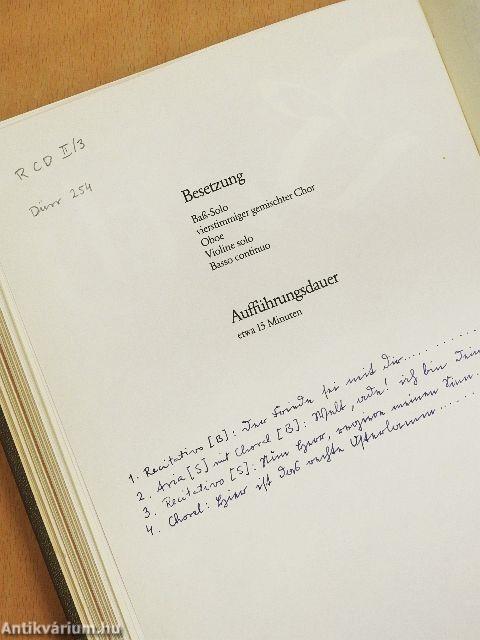 RCD II/3
Dürr 254
Besetzung
Baß-Solo
vierstimmiger gemischter Chor
Oboe
Violine solo
Basso continuo
Aufführungsdauer
etwa 15 Minuten
1. Recitativo [B]: Der Friede sei mit dir..........
2. Aria [S] mit Choral [B]: Welt, ade! ich bin dein
3. Recitativo [S]: Nun Herr, regiere meinen Sinn..
4. Choral: Hier ist das rechte Osterlamm........
Antikvárium.hu